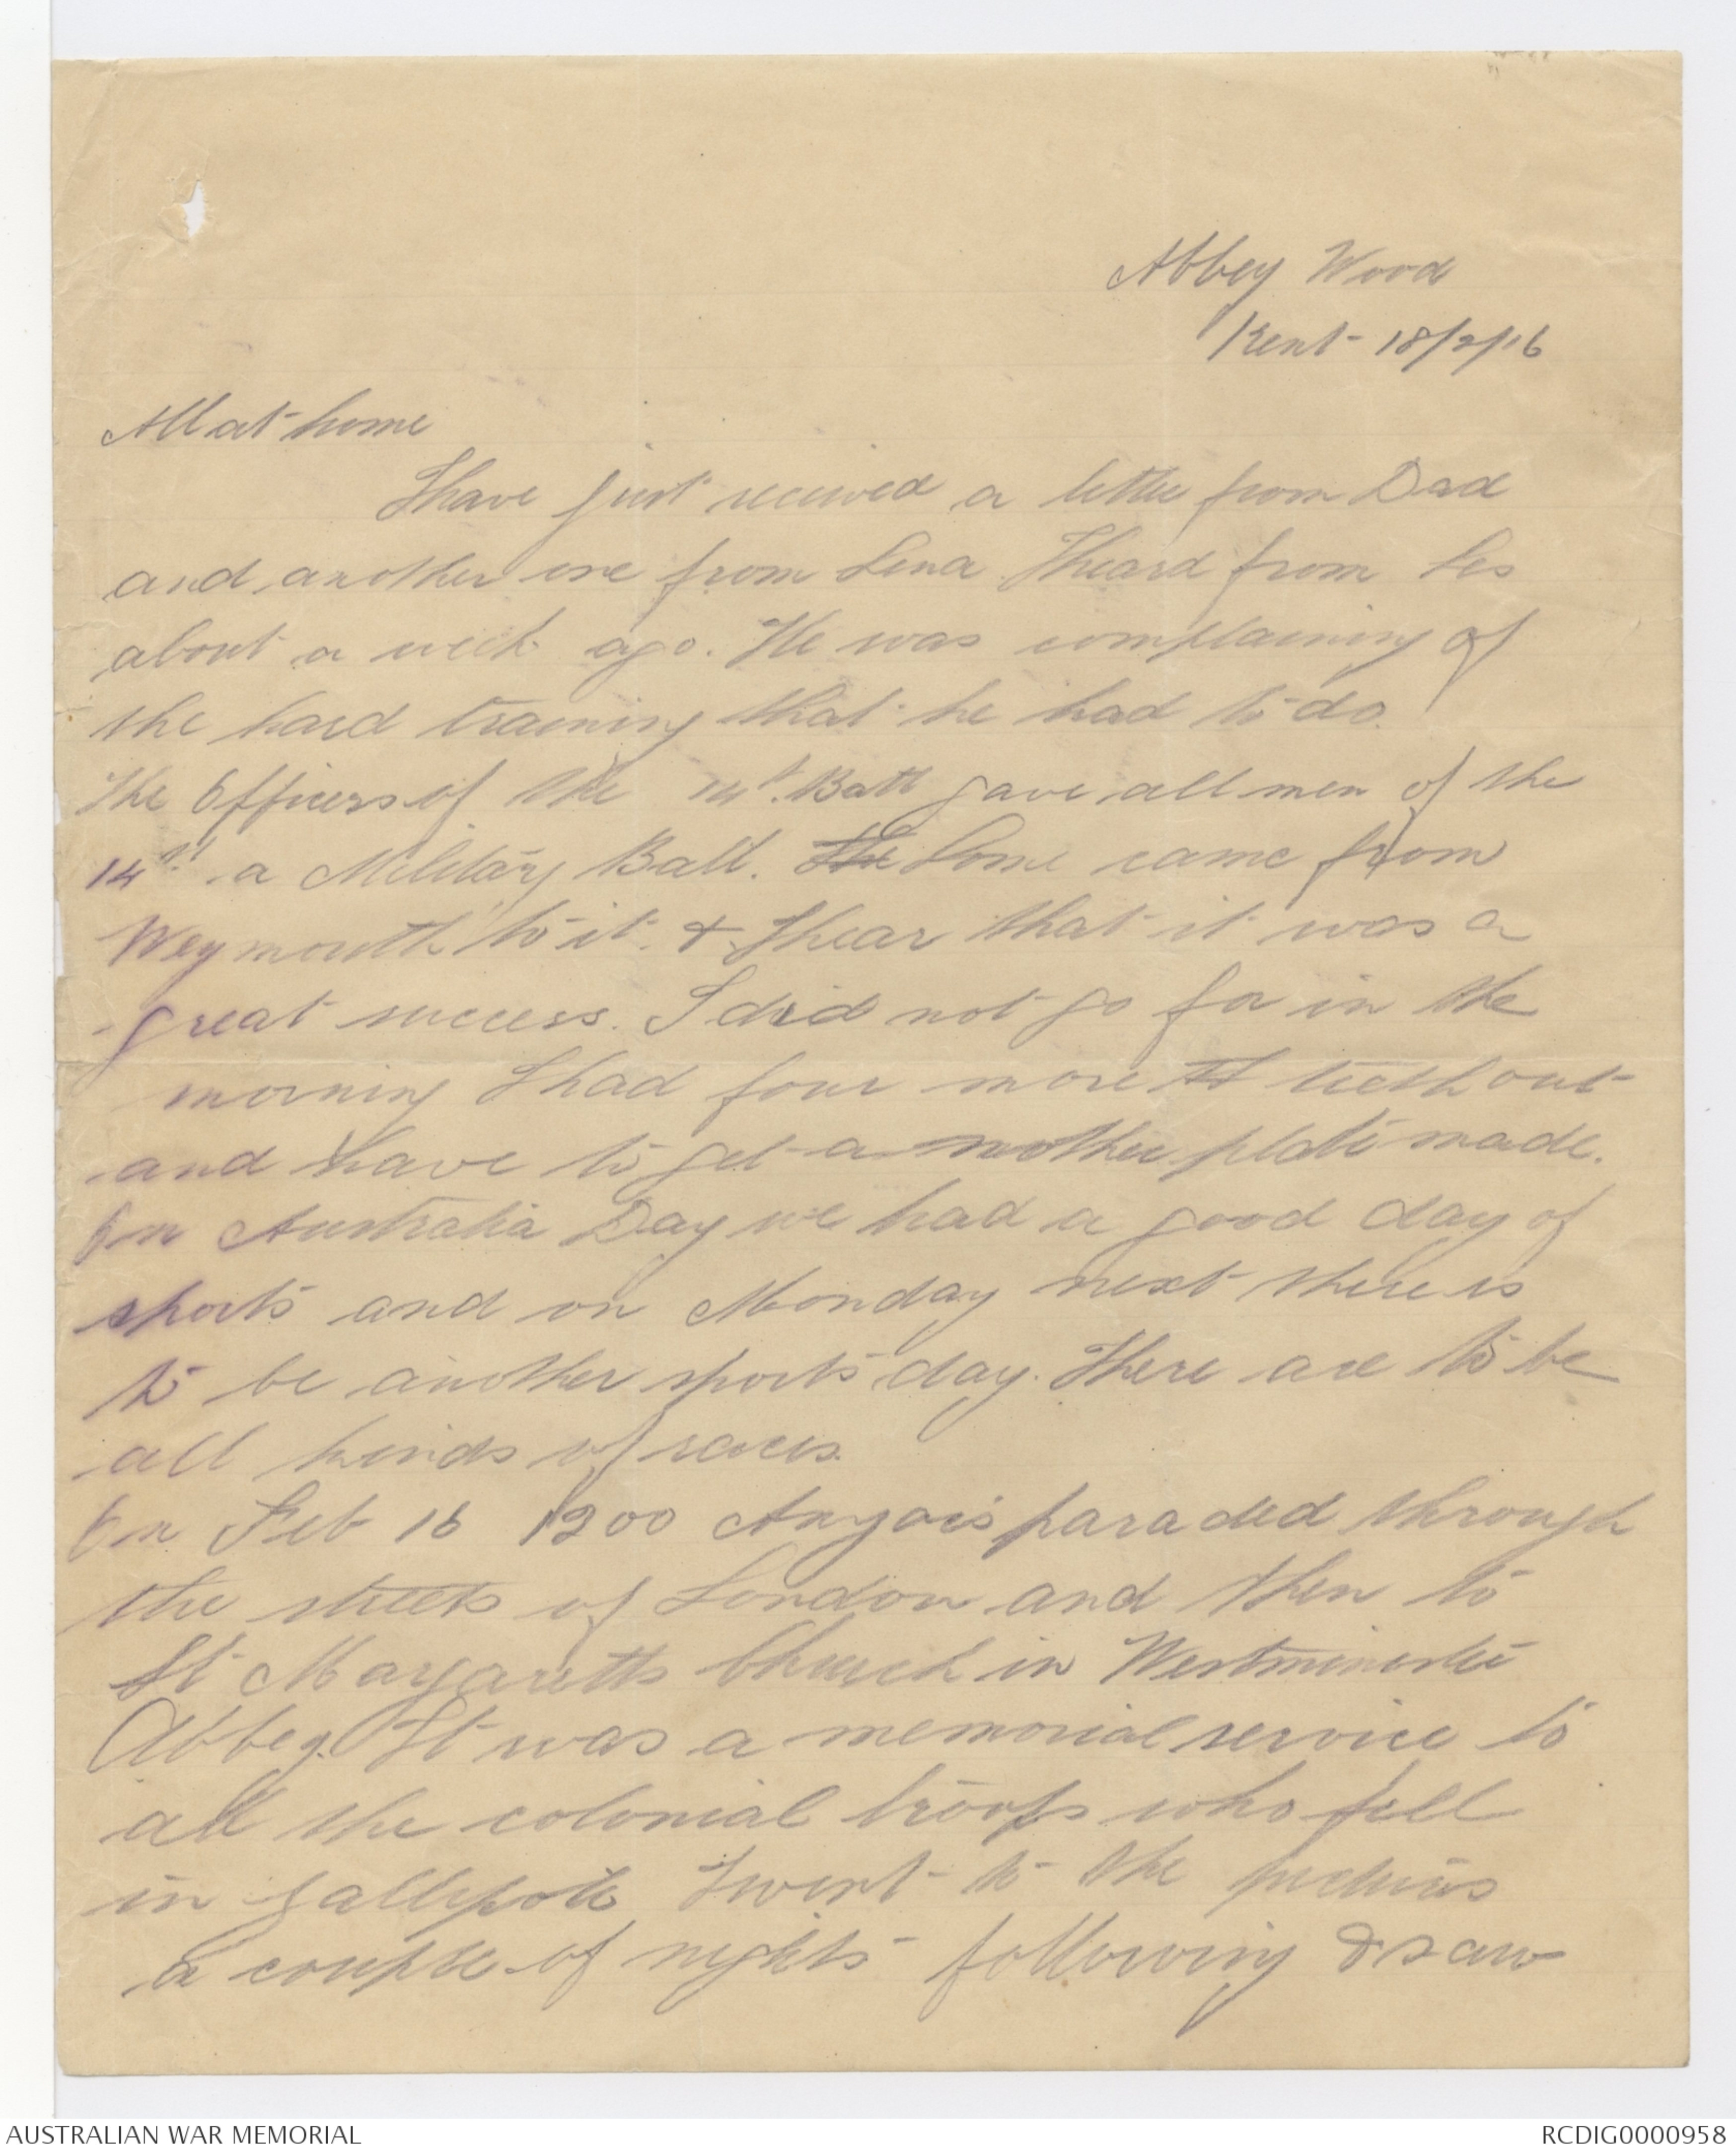 Abbey Wood
Kent 18/2/16
All at home
I have just received a letter from Dad
and another one from Lena I heard from Les
about a week ago. He was complaining of
the hard training that he had to do.
The Officers of the 14th. Batt gave all men of the
14th a Military Ball. The Some came from
Weymouth to it. & I hear that it was a
great success. I did not go for in the
morning I had four more tt teeth out
and have to get a nother plate made.
On Australia Day we had a good day of
sports and on Monday next there is
to be another sports day. There are to be
all kinds of races.
On Feb 16 1200 Anzacs paraded through
the streets of London and then to
St Margaretts Church in Westminster
Abbey. It was a memorial service to
all the colonial troops who fell
in Gallipoli I went to the pictures
a couple of nights following & saw
AUSTRALIAN WAR MEMORIAL
RCDIG0000958